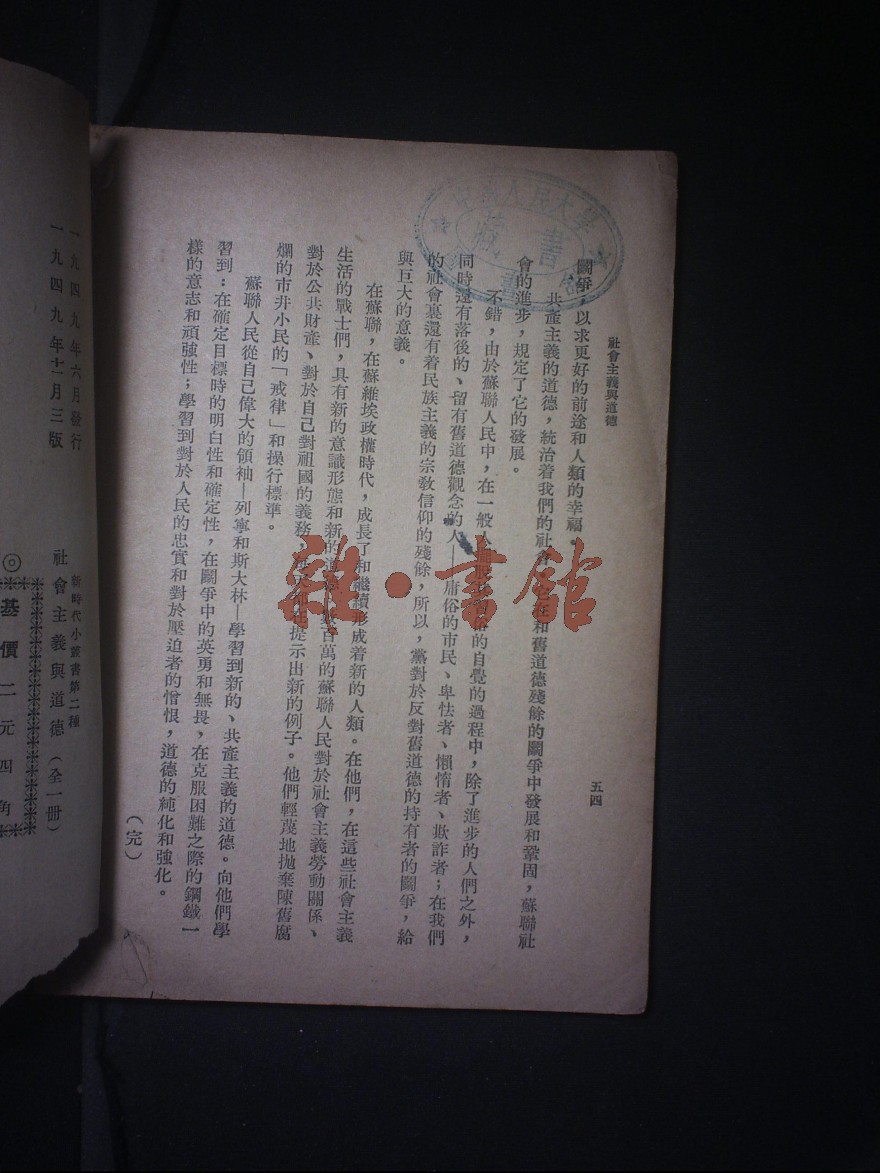 社會主義與道德
五四
鬭爭，以求更好的前途和人類的幸福。
共產主義的道德，統治着我們的社會，它在和舊道德殘餘的鬭爭中發展和鞏固，蘇聯社
會的進步，規定了它的發展。
不錯，由於蘇聯人民中，在一般人的自覺的過程中，除了進步的人們之外，
同時還有落後的、留有舊道德觀念的人——庸俗的市民、卑怯者、懶惰者、欺詐者；在我們
的社會裏還有着民族主義的宗教信仰的殘餘，所以，黨對於反對舊道德的持有者的鬭爭，給
與巨大的意義。
在蘇聯，在蘇維埃政權時代，成長了和繼續形成着新的人類。在他們，在這些社會主義
生活的戰士們，具有新的意識形態和新的道德。數百萬的蘇聯人民對於社會主義勞動關係、
對於公共財產、對於自己對祖國的義務，每天都在提示出新的例子。他們輕蔑地拋棄陳舊腐
爛的市井小民的「戒律」和操行標準。
蘇聯人民從自己偉大的領袖—列寧和斯大林—學習到新的、共產主義的道德。向他們學
習到：在確定目標時的明白性和確定性，在鬭爭中的英勇和無畏，在克服困難之際的鋼鐵一
樣的意志和頑強性；學習到對於人民的忠實和對於壓迫者的憎恨，道德的純化和強化。
（完）
人民大學
藏書
雜·書館
一九四九年六月發行
一九四九年十二月三版
新時代小叢書第二種
社會主義與道德（全一冊）
◎基價二元四角